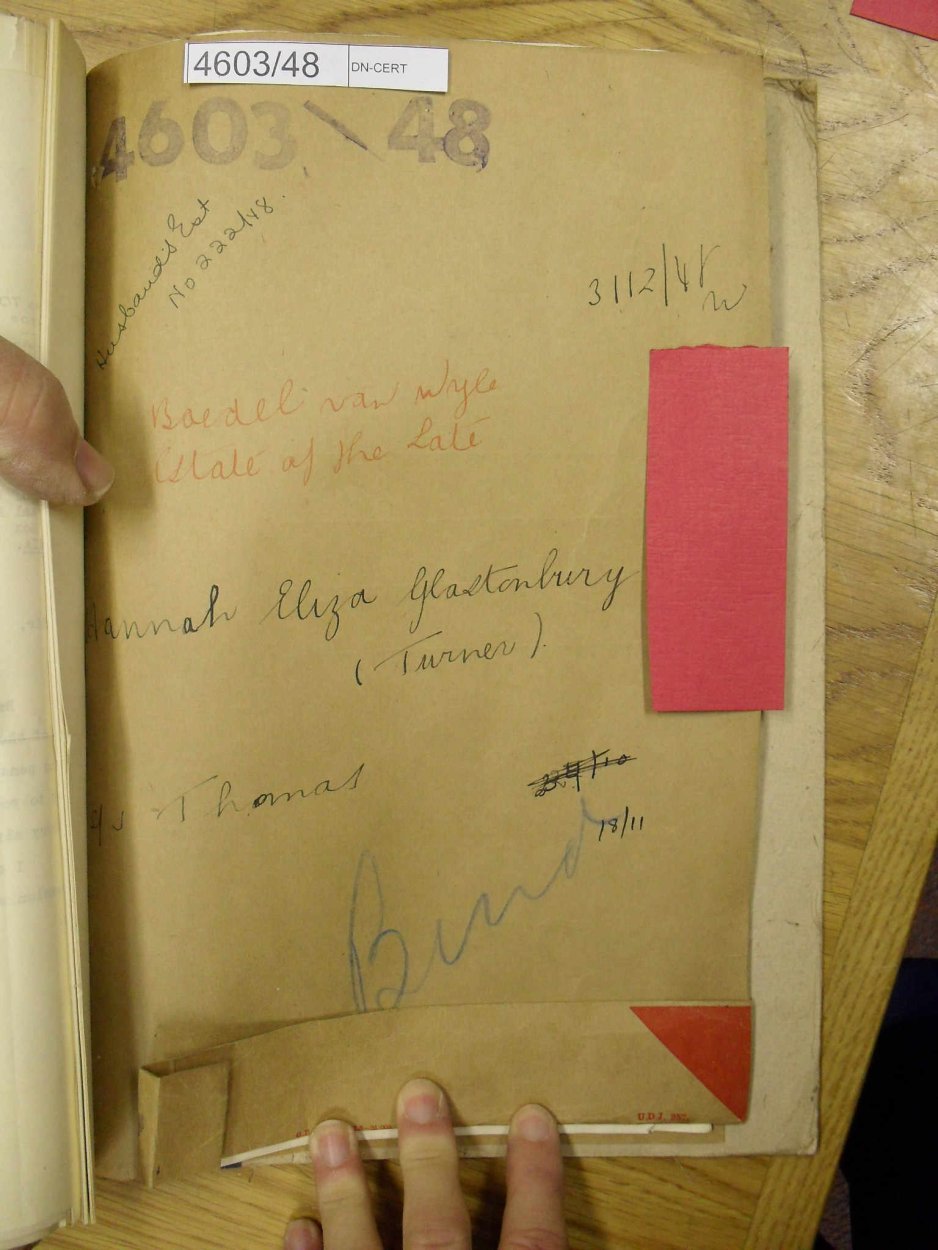 4603/48 DN-CERT
4603\48
Husband's Est
No 222/48.
3112/48
Boedel van Wyle
Estate of the Late
Hannah Eliza Glastonbury
(Turner).
Thomas
18/11
Bind
U.D.J. 952.